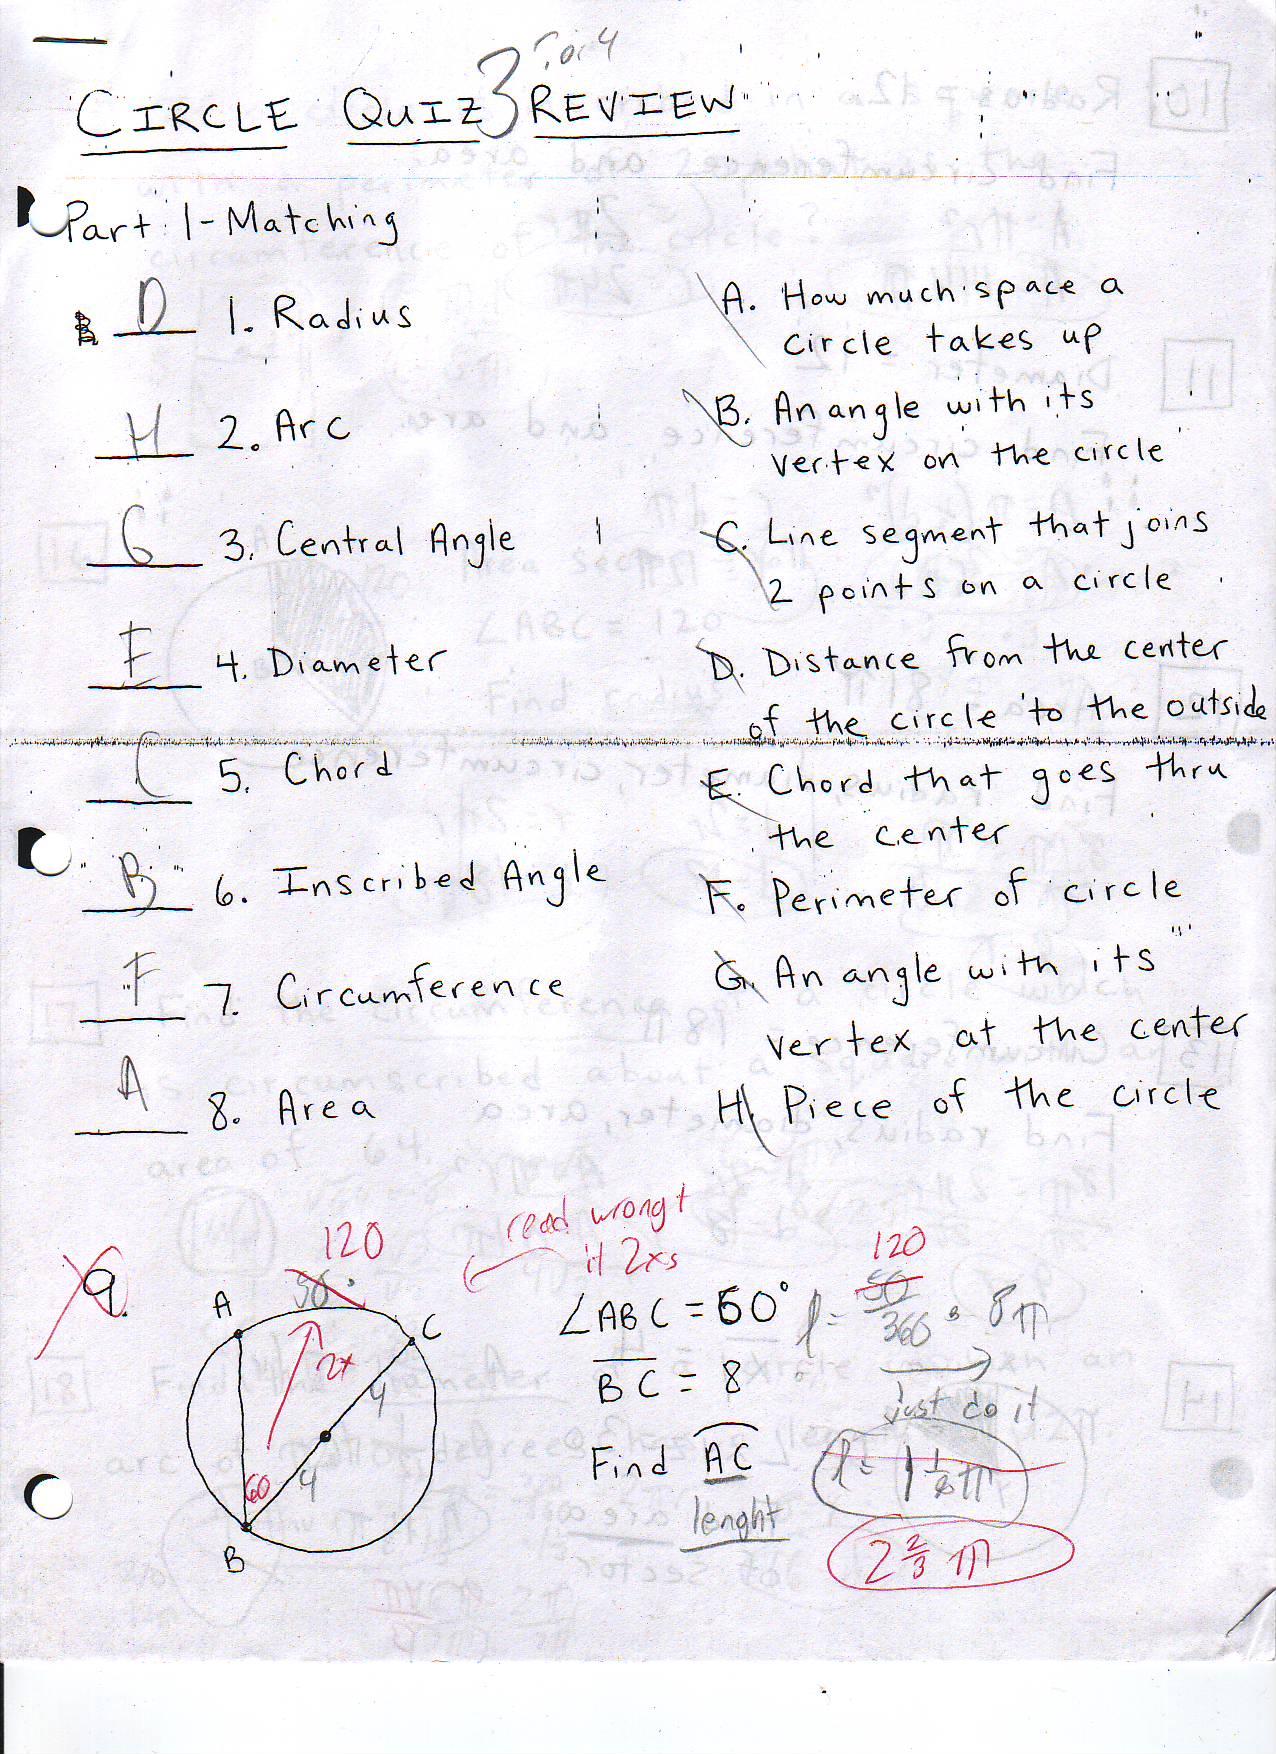 3 or 4
CIRCLE QUIZ 3 REVIEW
Part 1 - Matching
D 1. Radius
H 2. Arc
G 3. Central Angle
E 4. Diameter
C 5. Chord
B 6. Inscribed Angle
F 7. Circumference
A 8. Area
A. How much space a
circle takes up
B. An angle with its
vertex on the circle
C. Line segment that joins
2 points on a circle
D. Distance from the center
of the circle to the outside
E. Chord that goes thru
the center
F. Perimeter of circle
G. An angle with its
vertex at the center
H. Piece of the circle
9.
120
50°
A
C
2x
4
60
4
B
read wrong
it 2xs
∠ABC = 60°
BC = 8
Find AC
lenght
120
l = 50/360 · 8π
just do it
l = 1 1/8 π
2 2/3 π